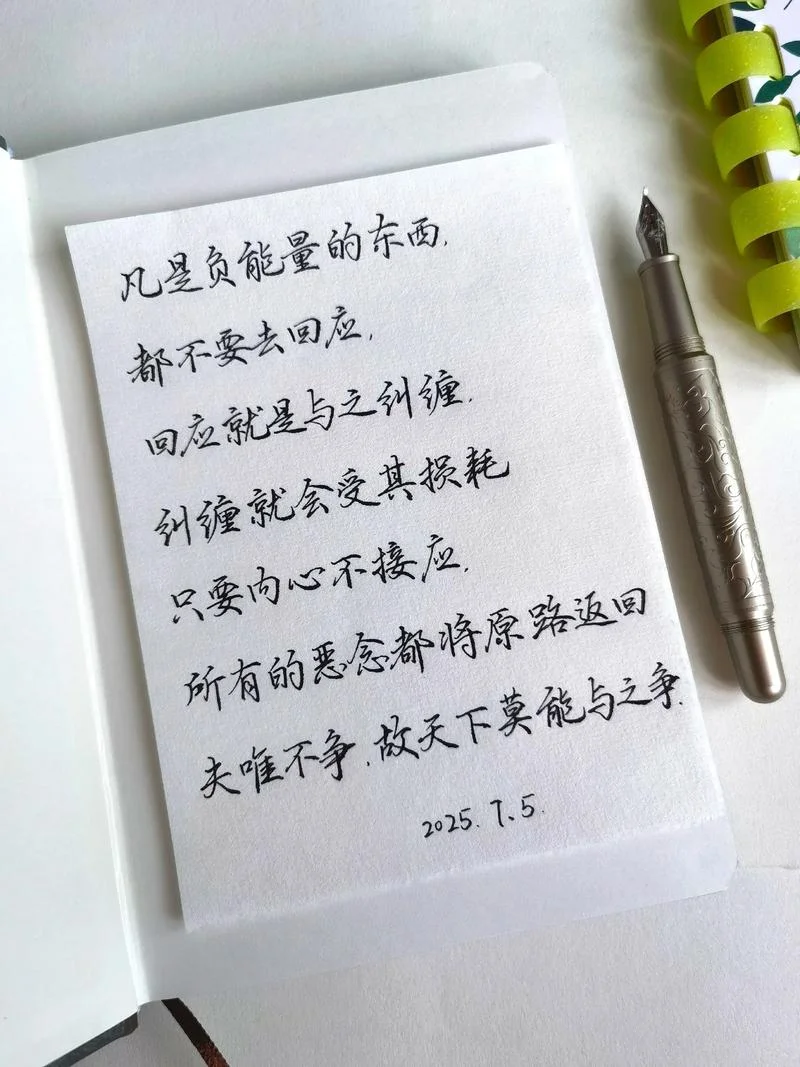 凡是负能量的东西,
都不要去回应,
回应就是与之纠缠,
纠缠就会受其损耗
只要内心不接应,
所有的恶念都将原路返回
夫唯不争,故天下莫能与之争.
2025.7.5.